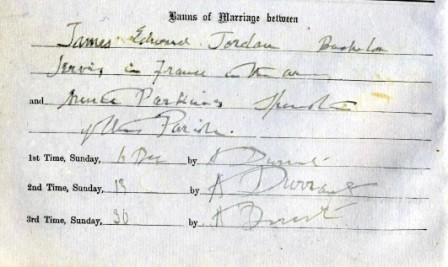 Banns of Marriage between
James Edward Jordan Bachelor
Serving in France in the army
and Parkins Spinster
of this Parish.
1st Time, Sunday, 6 Dec by A Durrant
2nd Time, Sunday, by A Durrant
3rd Time, Sunday, by A Durrant